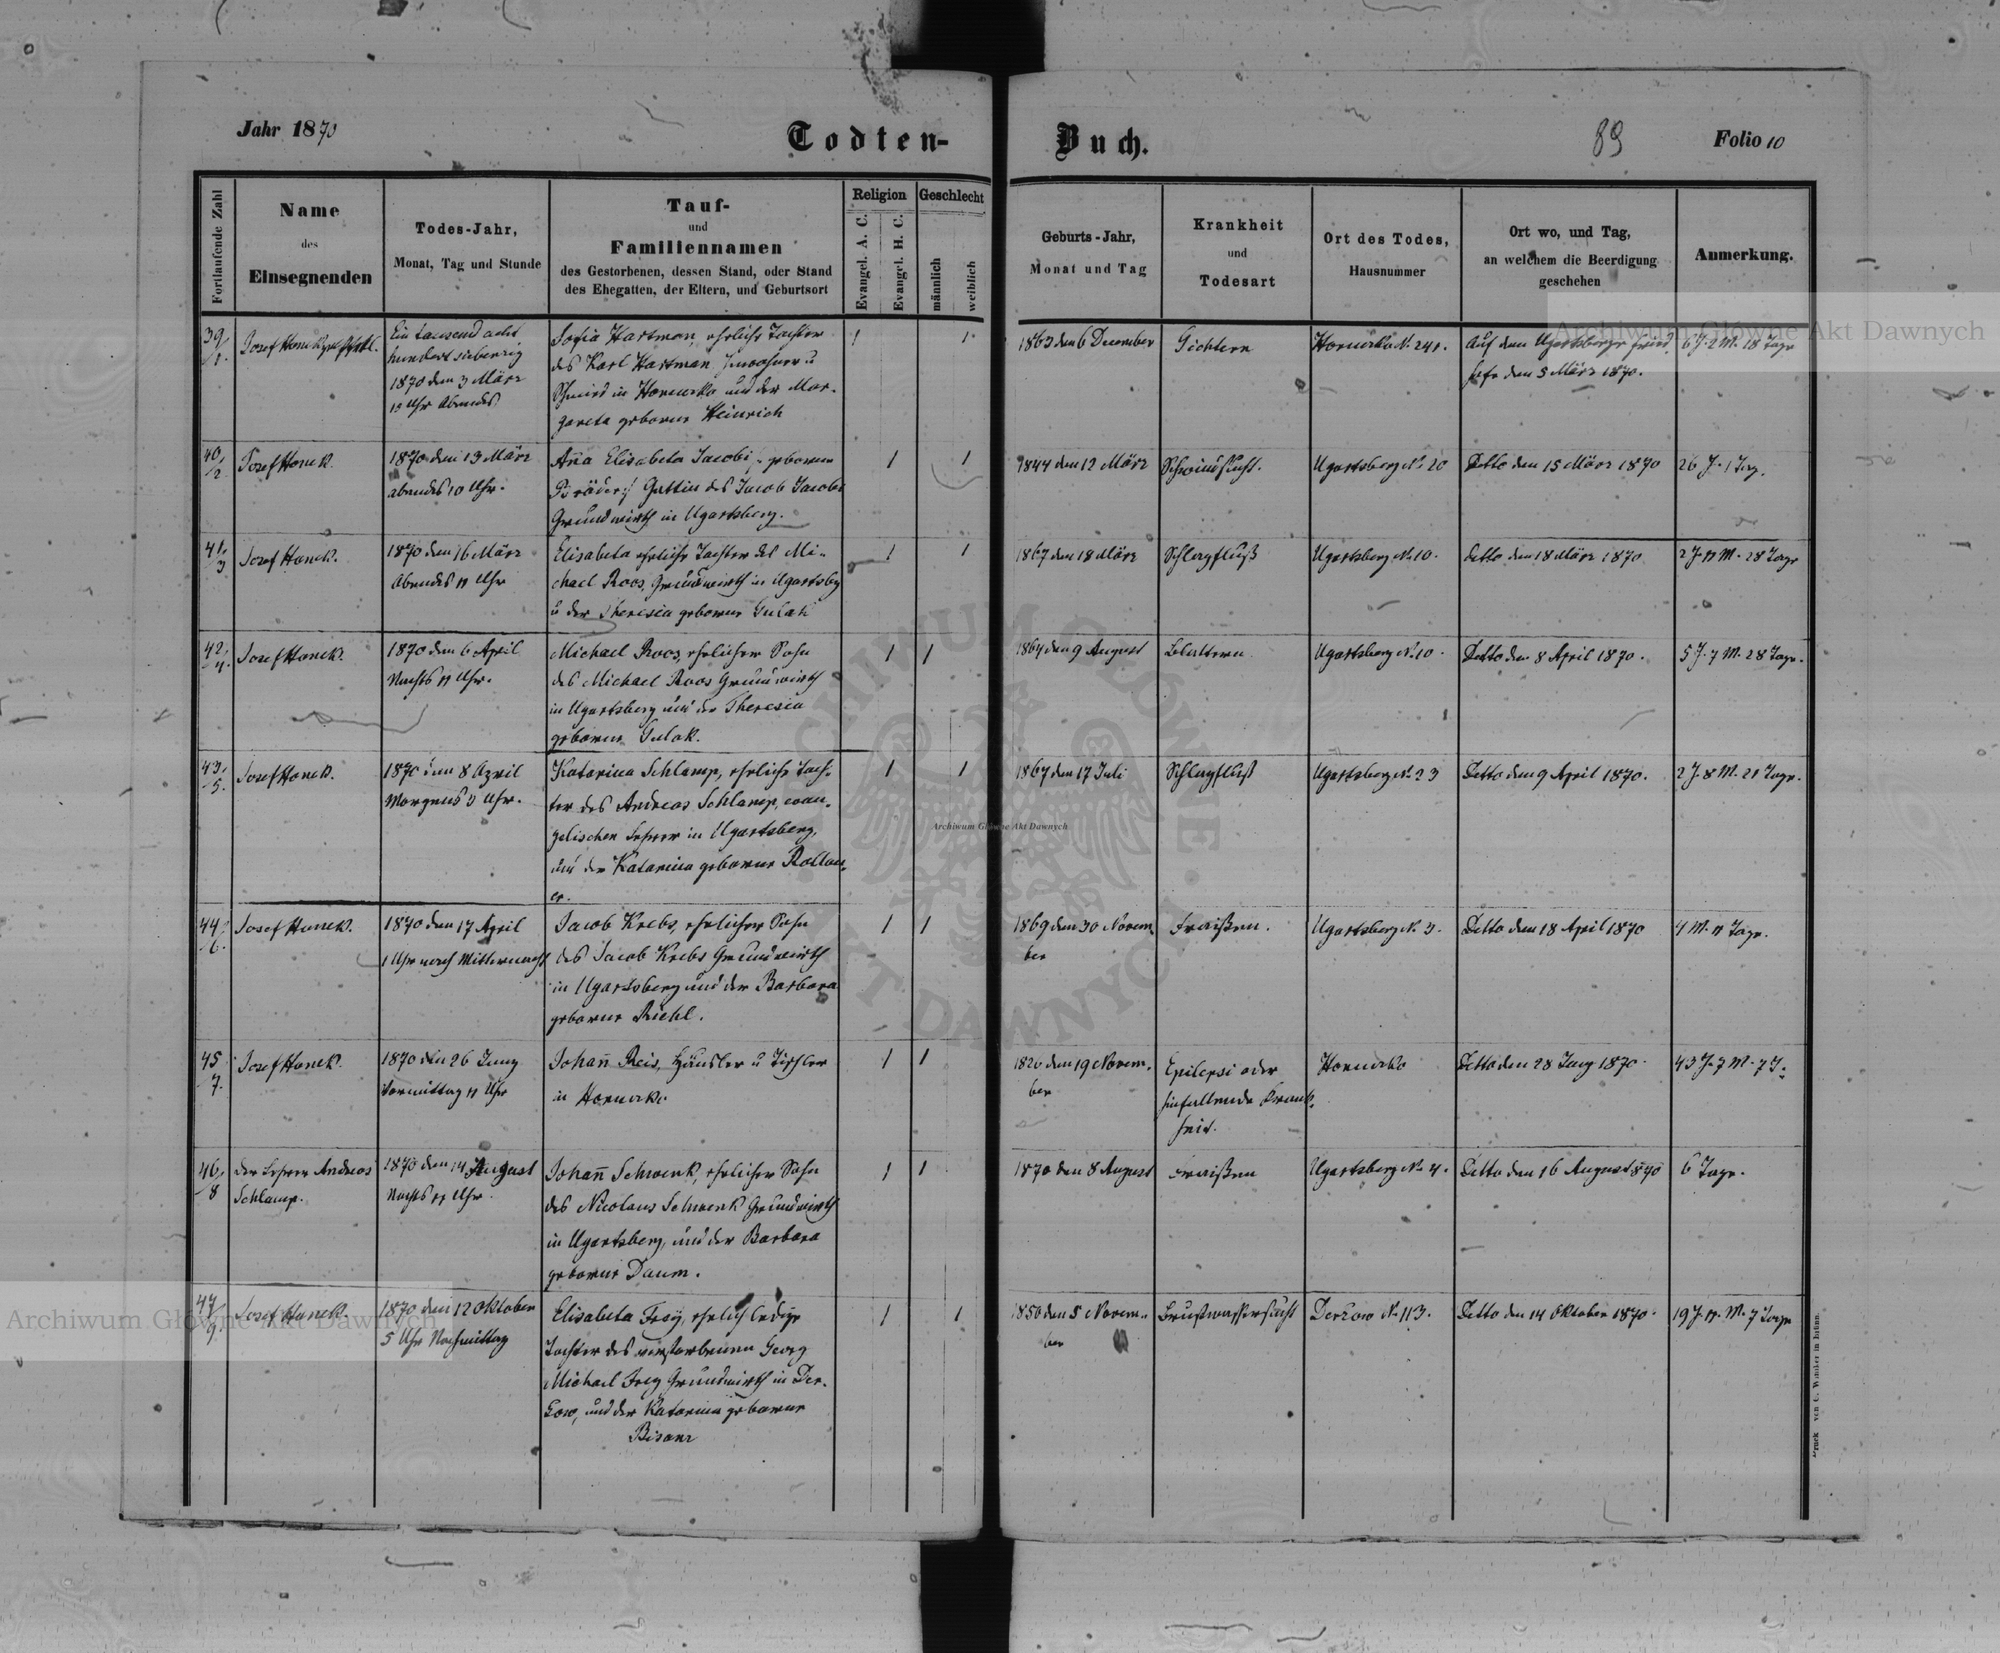 Jahr 1870
Todten-
Buch.
89
Folio 10
Fortlaufende Zahl
Name
des
Einsegnenden
Todes-Jahr,
Monat, Tag und Stunde
Tauf-
und
Familiennamen
des Gestorbenen, dessen Stand, oder Stand
des Ehegatten, der Eltern, und Geburtsort
Religion
Evangel. A. C.
Evangel. H. C.
Geschlecht
männlich
weiblich
Geburts-Jahr,
Monat und Tag
Krankheit
und
Todesart
Ort des Todes,
Hausnummer
Ort wo, und Tag,
an welchem die Beerdigung
geschehen
Anmerkung.
39/1.
Josef Hanek
Ein tausend acht
hundert siebenzig
1870 den 3 März
Uhr Abends
Sofia Hartman, eheliche Tochter
des Karl Hartman Inwohner u
Schmied in Horucko und der Mar-
gareta geborene Heinrich
1
1
1863 den 6 December
Gichtern
Horucko N. 241.
Auf dem Ugartsberger Fried
hofe den 5 März 1870.
6 J. 2 M. 18 Tage
40/2.
Josef Hanek.
1870 den 13 März
abends 10 Uhr.
Anna Elisabeta Jacobi, geborene
Gattin des Jacob Jacobi
Grundwirth in Ugartsberg.
1
1
1844 den 12 März
Schwindsucht.
Ugartsberg N. 20
Detto den 15 März 1870
26 J. 1 Tag.
41/3
Josef Hanek.
1870 den 16 März
Abends 11 Uhr
Elisabeta eheliche Tochter des Mi-
chael Roos, Grundwirth in Ugartsbg
u der Theresia geborene Gulak
1
1
1867 den 18 März
Schlagfluß
Ugartsberg N. 10.
detto den 18 März 1870
2 J. 11 M. 28 Tage
42/4.
Josef Hanek.
1870 den 6 April
Nachts 11 Uhr.
Michael Roos, ehelicher Sohn
des Michael Roos Grundwirth
in Ugartsberg und der Theresia
geborene Gulak.
1
1
1864 den 9 August
Blattern
Ugartsberg N. 10.
Detto den 8 April 1870.
5 J. 7 M. 28 Tage.
43/5.
Josef Hanek.
1870 den 8 April
Morgens 3 Uhr.
Katarina Schlamp, eheliche Toch-
ter des Andreas Schlamp, evan-
gelischen Lehrer in Ugartsberg,
und der Katarina geborene Rollau-
er.
1
1
1867 den 17 Juli
Schlagfluß
Ugartsberg N. 23
Detto den 9 April 1870.
2 J. 8 M. 21 Tage.
44/6.
Josef Hanek.
1870 den 17 April
1 Uhr nach Mitternacht
Jacob Krebs, ehelicher Sohn
des Jacob Krebs Grundwirth
in Ugartsberg und der Barbara
geborene Riehl.
1
1
1869 den 30 Novem-
ber
Fraißen.
Ugartsberg N. 3.
Detto den 18 April 1870
4 M. 11 Tage.
45/7.
Josef Hanek.
1870 den 26 Juny
Vormittag 11 Uhr
Johann Reis, Häusler u Tischler
in Horucko
1
1
1826 den 19 Novem-
ber
Epilepsi oder
hinfallende Krank-
heit.
Horucko
Detto den 28 Juny 1870.
43 J. 7 M. 7 T.
46/8
der Lehrer Andreas
Schlamp.
1870 den 14 August
Nachts 11 Uhr.
Johann Schwenk, ehelicher Sohn
des Nicolaus Schwenk Grundwirth
in Ugartsberg, und der Barbara
geborene Daum.
1
1
1870 den 8 August
Fraißen
Ugartsberg N. 4.
Detto den 16 August 1870
6 Tage.
47/9.
Josef Hanek.
1870 den 12 Oktober
5 Uhr Nachmittag
Elisabeta Frey, ehelich ledige
Tochter des verstorbenen Georg
Michael Frey Grundwirth in Der-
zow, und der Katarina geborene
Bisanz
1
1
1850 den 5 Novem-
ber
Brustwassersucht
Derzow N. 113.
Detto den 14 Oktober 1870.
19 J. 11 M. 7 Tage
Druck von C. Winiker in Brünn.
Archiwum Główne Akt Dawnych
Archiwum Główne Akt Dawnych
Archiwum Główne Akt Dawnych
ARCHIWUM GŁÓWNE AKT DAWNYCH